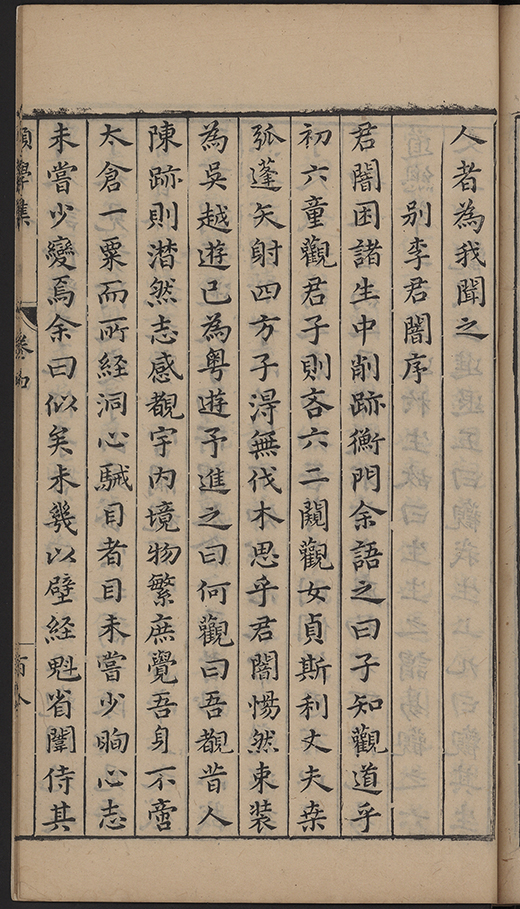 人者為我聞之
別李君闇序
君闇困諸生中削跡衡門余語之曰子知觀道乎
初六童觀君子則吝六二闚觀女貞斯利丈夫桒
弧蓬矢射四方子淂無伐木思乎君闇惕然束裝
為吳越遊已為粤遊予進之曰何觀曰吾覩昔人
陳跡則潸然志感覩宇内境物繁庶覺吾身不啻
太倉一粟而所經洞心駴目者目未嘗少眴心志
未嘗少變焉余曰似矣未幾以壁經魁省闈侍其
願學集
卷四